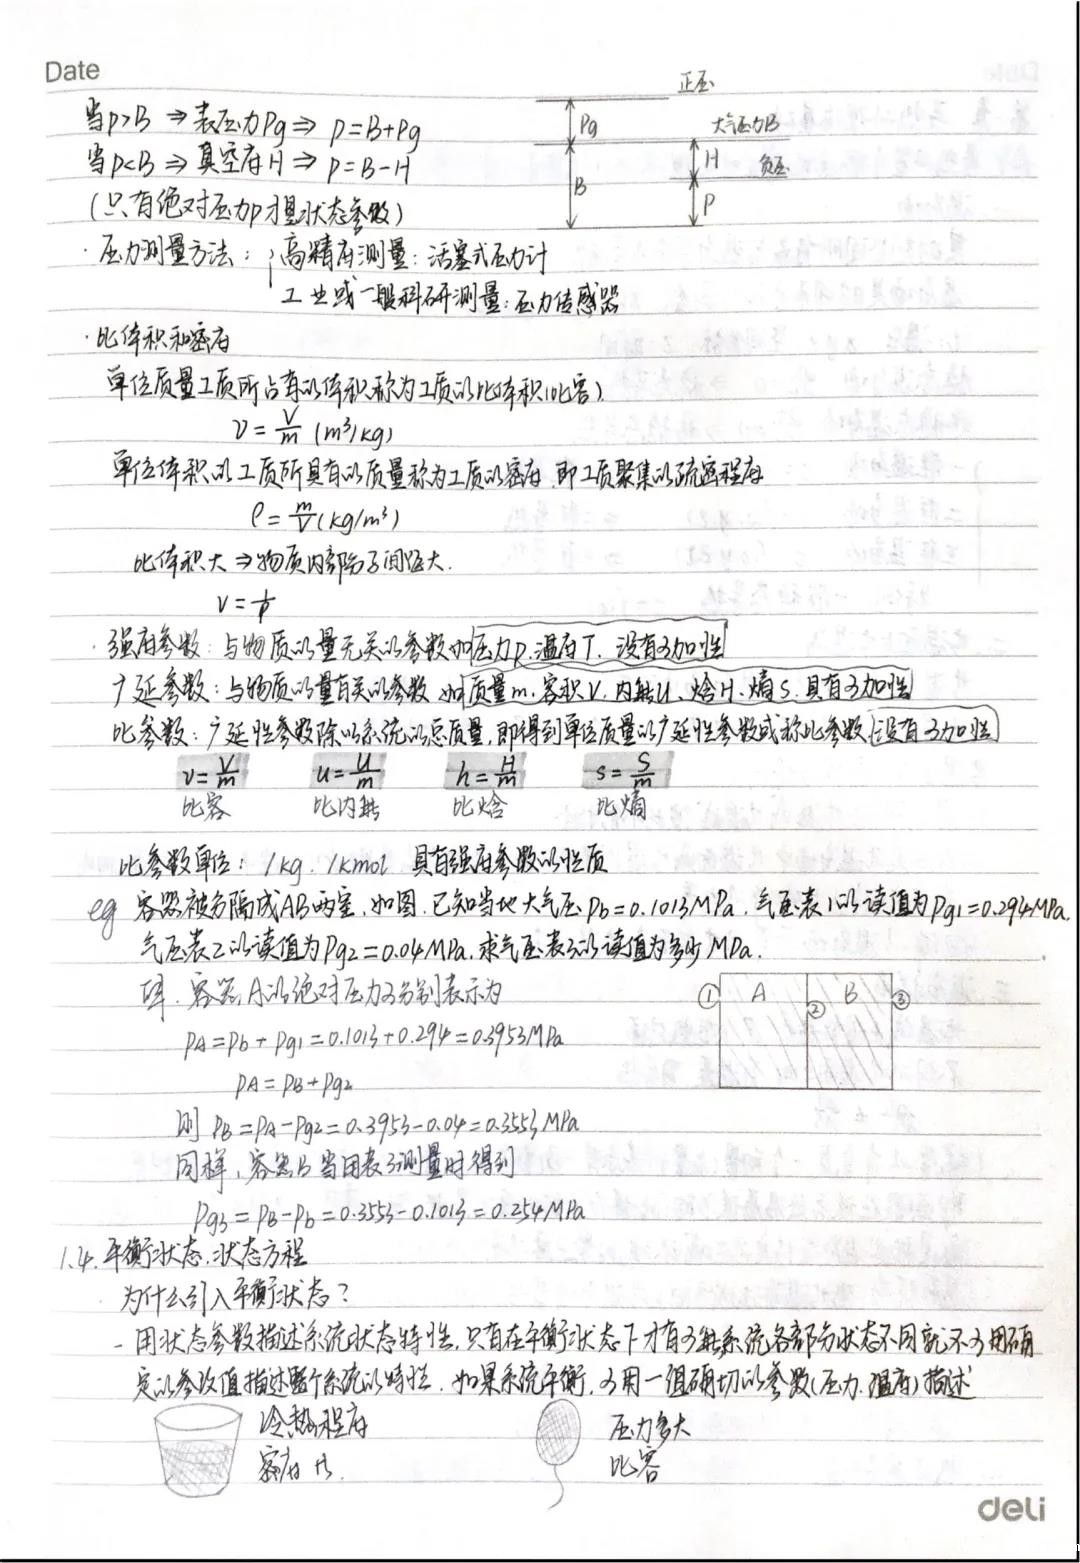 Date
当p>B ⇒ 表压力Pg ⇒ p=B+Pg
当p<B ⇒ 真空度H ⇒ p=B-H
(只有绝对压力p才是状态参数)
正压
Pg
大气压力B
H
负压
B
P
· 压力测量方法: 高精度测量: 活塞式压力计
工业或一般科研测量: 压力传感器
· 比体积和密度
单位质量工质所占有的体积称为工质的比体积(比容)
v=V/m (m³/kg)
单位体积的工质所具有的质量称为工质的密度, 即工质聚集的疏密程度
ρ=m/V (kg/m³)
比体积大 ⇒ 物质内部分子间距大.
v=1/ρ
· 强度参数: 与物质的量无关的参数如压力p.温度T. 没有可加性
广延参数: 与物质的量有关的参数 如质量m.容积V.内能U.焓H.熵S.具有可加性
比参数: 广延性参数除以系统的总质量,即得到单位质量的广延性参数或称比参数 没有可加性
v=V/m u=U/m h=H/m s=S/m
比容 比内能 比焓 比熵
比参数单位: /kg. /kmol 具有强度参数的性质
eg 容器被分隔成AB两室,如图.已知当地大气压Pb=0.1013MPa.气压表1的读值为Pg1=0.294MPa,
气压表2的读值为Pg2=0.04MPa.求气压表3的读值为多少MPa.
解. 容器A的绝对压力可分别表示为
① A ② B ③
PA=Pb+Pg1=0.1013+0.294=0.3953MPa
PA=PB+Pg2
则 PB=PA-Pg2=0.3953-0.04=0.3553MPa
同样,容器B当用表3测量时得到
Pg3=PB-Pb=0.3553-0.1013=0.254MPa
1.4.平衡状态.状态方程
· 为什么引入平衡状态?
- 用状态参数描述系统状态特性,只有在平衡状态下才有可能,系统各部分状态不同就不可用确
定的参数值描述整个系统的特性. 如果系统平衡,可用一组确切的参数(压力.温度)描述
冷热程度
密度
压力多大
比容
deli